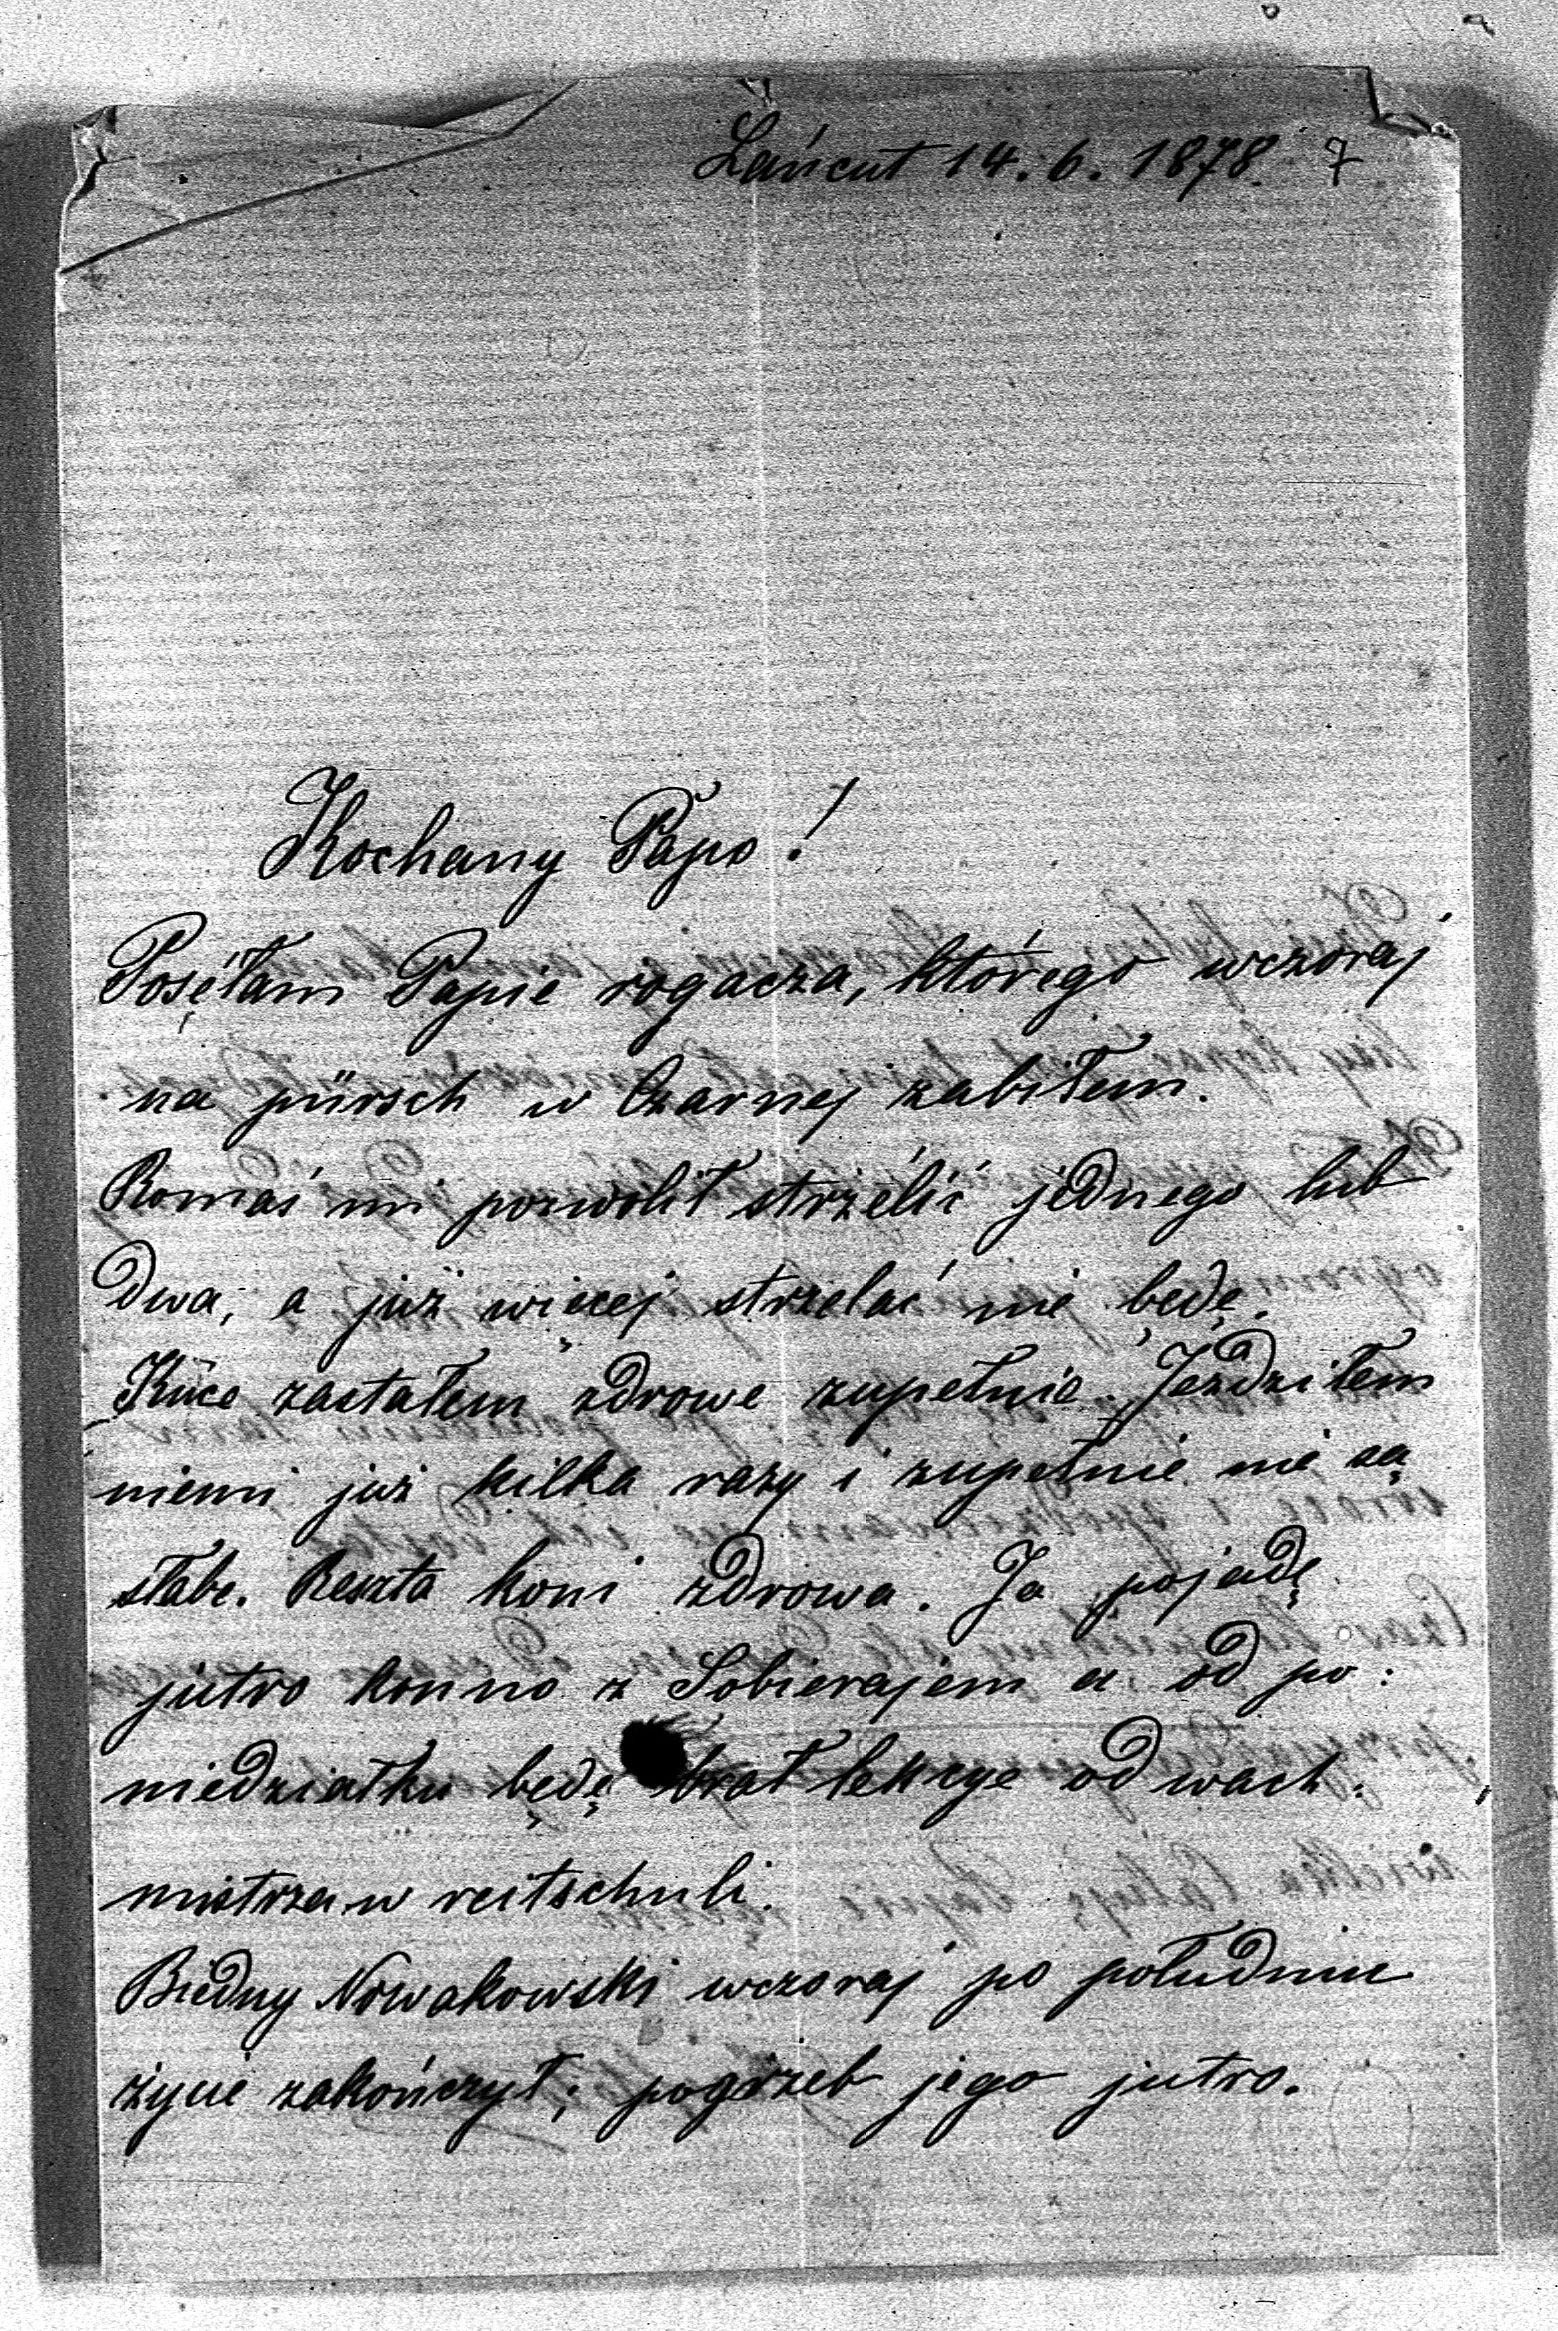 Łańcut 14. 6. 1878. 7
Kochany Papo!
Posęłam Papie rogacza, którego wczoraj
na pürsch w Czarnej zabiłem.
Romaś mi pozwolił strzélić jednego lub
dwa, a już więcej strzelać nie będę.
Kuce zastałem zdrowe zupełnie. Jeździłem
niemi już kilka razy i zupełnie nie są
słabe. Reszta koni zdrowa. Ja pojadę
jutro konno z Sobierajem a od po:
niedziałku będę brał lekcye od wach:
mistrza w reitschuli.
Biedny Nowakowski wczoraj po południu
życie zakończył; pogrzeb jego jutro.